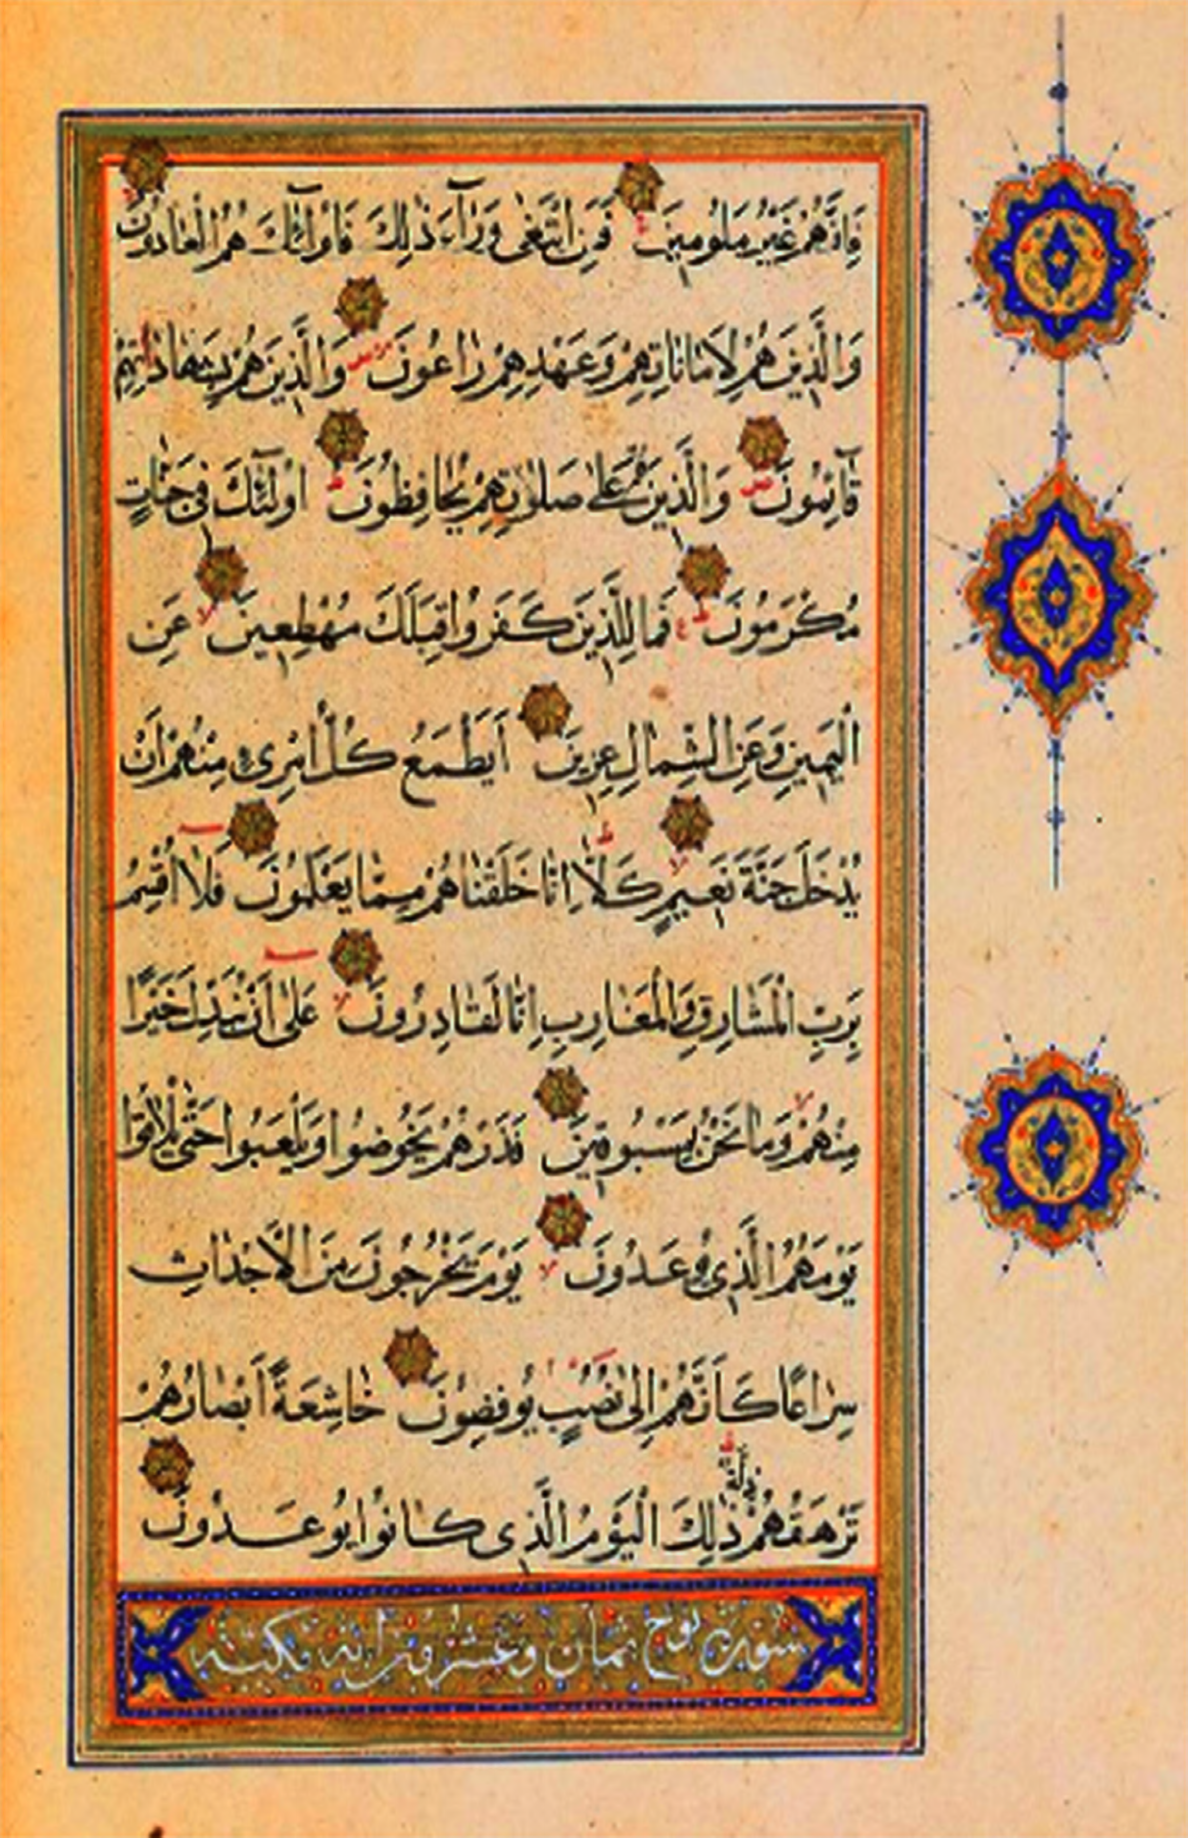 فَإِنَّهُمْ غَيْرُ مَلُومِينَ فَمَنِ ابْتَغَىٰ وَرَآءَ ذَٰلِكَ فَاُولٰٓئِكَ هُمُ الْعَادُونَ
وَالَّذِينَ هُمْ لِاَمَانَاتِهِمْ وَعَهْدِهِمْ رَاعُونَ وَالَّذِينَ هُمْ بِشَهَادَاتِهِمْ
قَآئِمُونَ وَالَّذِينَ هُمْ عَلَىٰ صَلَوٰتِهِمْ يُحَافِظُونَ اُولٰٓئِكَ فِى جَنَّاتٍ
مُكْرَمُونَ فَمَا لِلَّذِينَ كَفَرُوا قِبَلَكَ مُهْطِعِينَ عَنِ
الْيَمِينِ وَعَنِ الشِّمَالِ عِزِينَ اَيَطْمَعُ كُلُّ امْرِىءٍ مِنْهُمْ اَنْ
يُدْخَلَ جَنَّةَ نَعِيمٍ كَلَّا اِنَّا خَلَقْنَاهُمْ مِمَّا يَعْلَمُونَ فَلَآ اُقْسِمُ
بِرَبِّ الْمَشَارِقِ وَالْمَغَارِبِ اِنَّا لَقَادِرُونَ عَلَىٰ اَنْ نُبَدِّلَ خَيْرًا
مِنْهُمْ وَمَا نَحْنُ بِمَسْبُوقِينَ فَذَرْهُمْ يَخُوضُوا وَيَلْعَبُوا حَتَّىٰ يُلَاقُوا
يَوْمَهُمُ الَّذِى يُوعَدُونَ يَوْمَ يَخْرُجُونَ مِنَ الْاَجْدَاثِ
سِرَاعًا كَاَنَّهُمْ اِلَىٰ نُصُبٍ يُوفِضُونَ خَاشِعَةً اَبْصَارُهُمْ
تَرْهَقُهُمْ ذِلَّةٌ ذَٰلِكَ الْيَوْمُ الَّذِى كَانُوا يُوعَدُونَ
سورة نوح ثمان وعشرون اية مكية